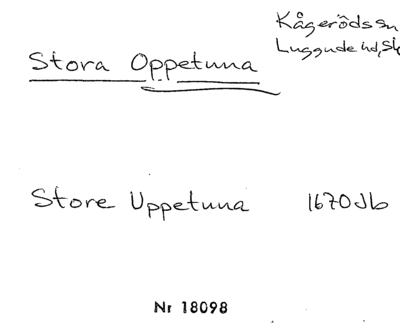 Kågeröds sn
Luggude hd, Sk
Stora Oppetuna
Store Uppetuna 1670 Jb
Nr 18098